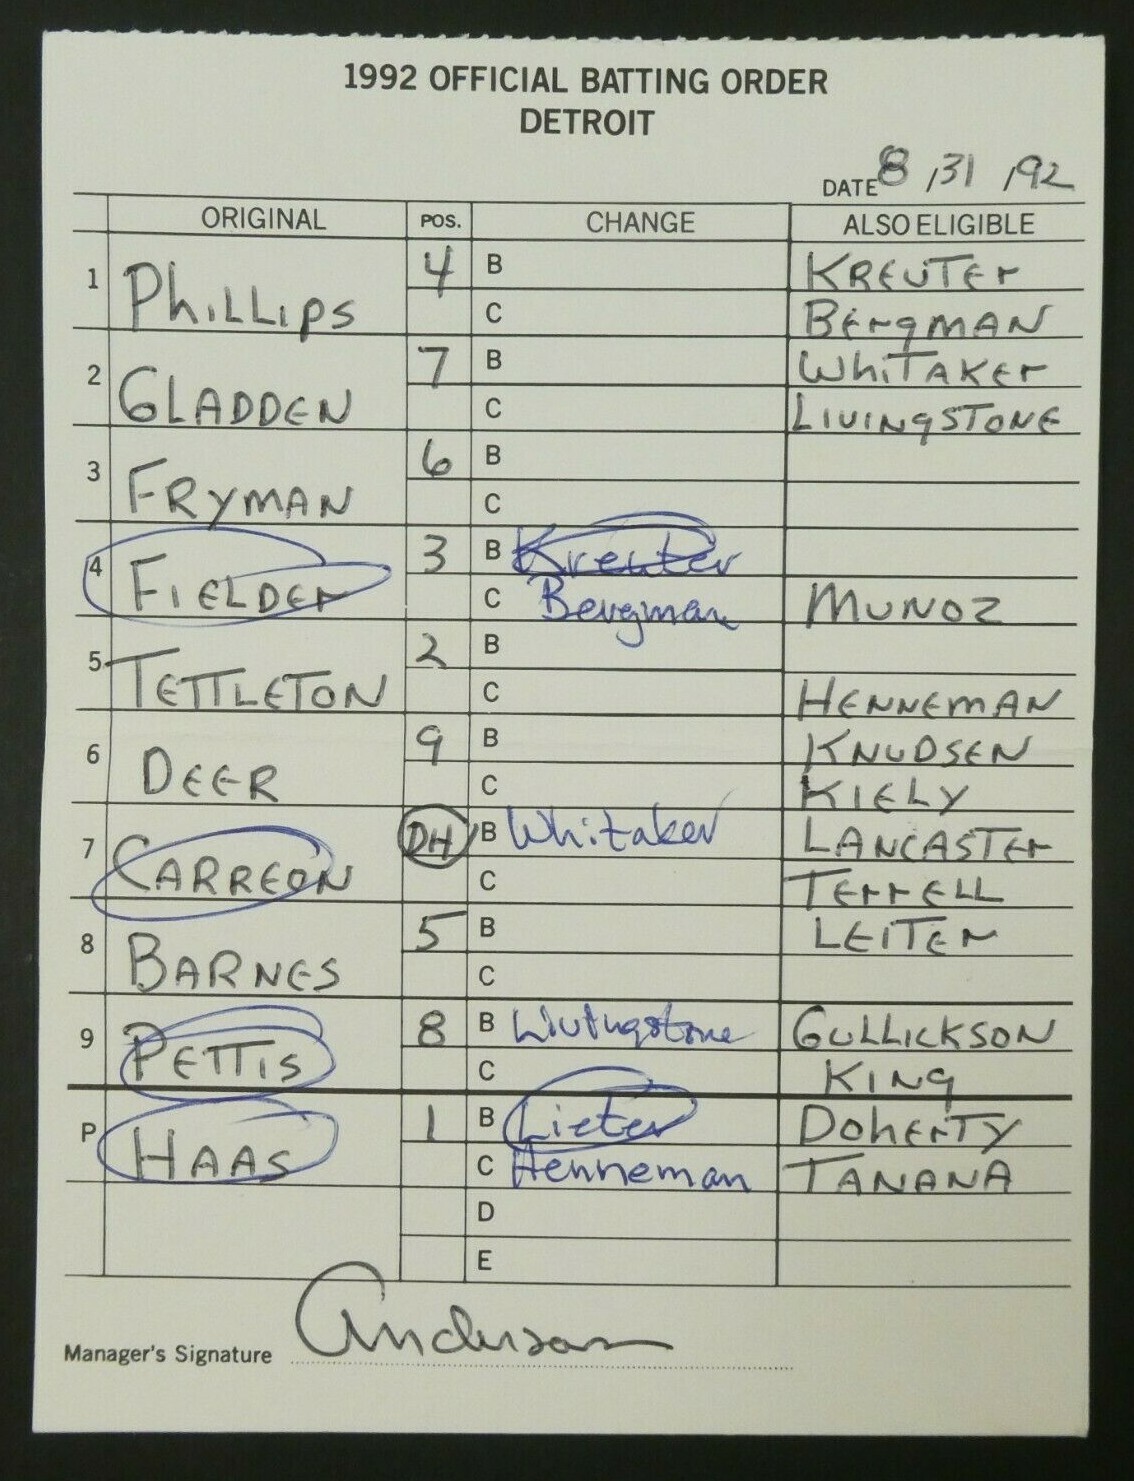 1992 OFFICIAL BATTING ORDER
DETROIT
DATE 8/31/92
ORIGINAL POS. CHANGE ALSO ELIGIBLE
1 Phillips 4 B KREUTEr
C BErgMAN
2 GLADDEN 7 B WhiTAKEr
C LIVINgSTONE
3 FRYMAN 6 B
C
4 FIELDEr 3 B Kreuter
C Bergman MUNOZ
5 TETTLETON 2 B
C HENNEMAN
6 DEER 9 B KNUDSEN
C KIELY
7 CARREON DH B Whitaker LANCASTEr
C TErrELL
8 BARNES 5 B LEITEr
C
9 PETTIS 8 B Livingstone GULLICKSON
C KINg
P HAAS 1 B Lieter DOhErTY
C Henneman TANANA
D
E
Manager's Signature Anderson